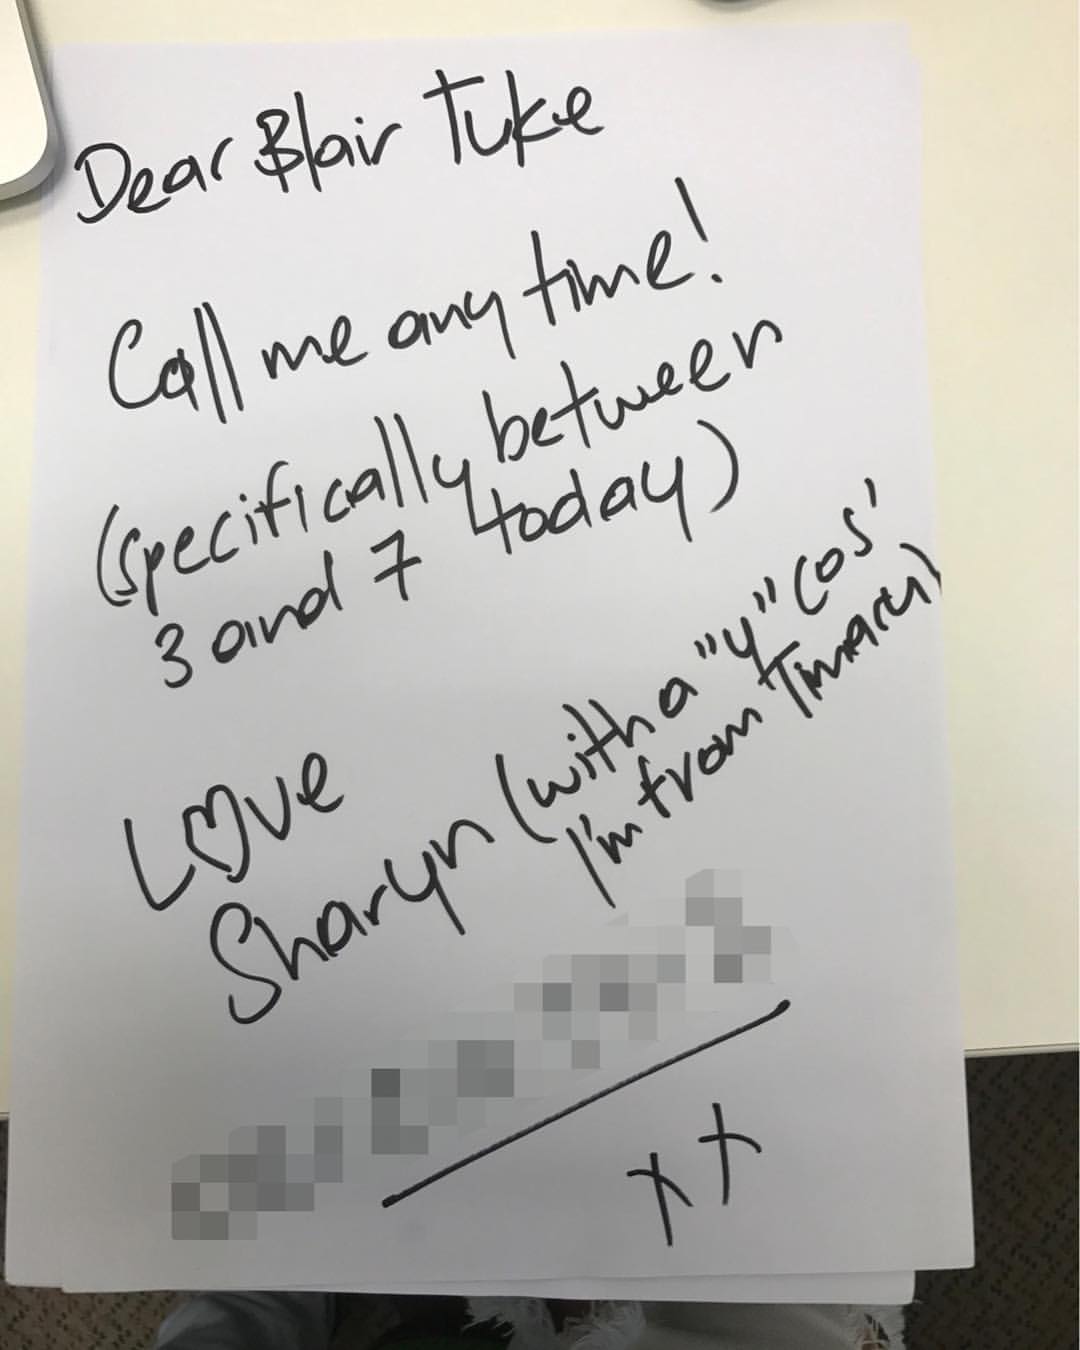 Dear Blair Tuke
Call me any time!
(specifically between
3 and 7 today)
Love
Sharyn (with a "y" cos'
I'm from Timaru)
xx